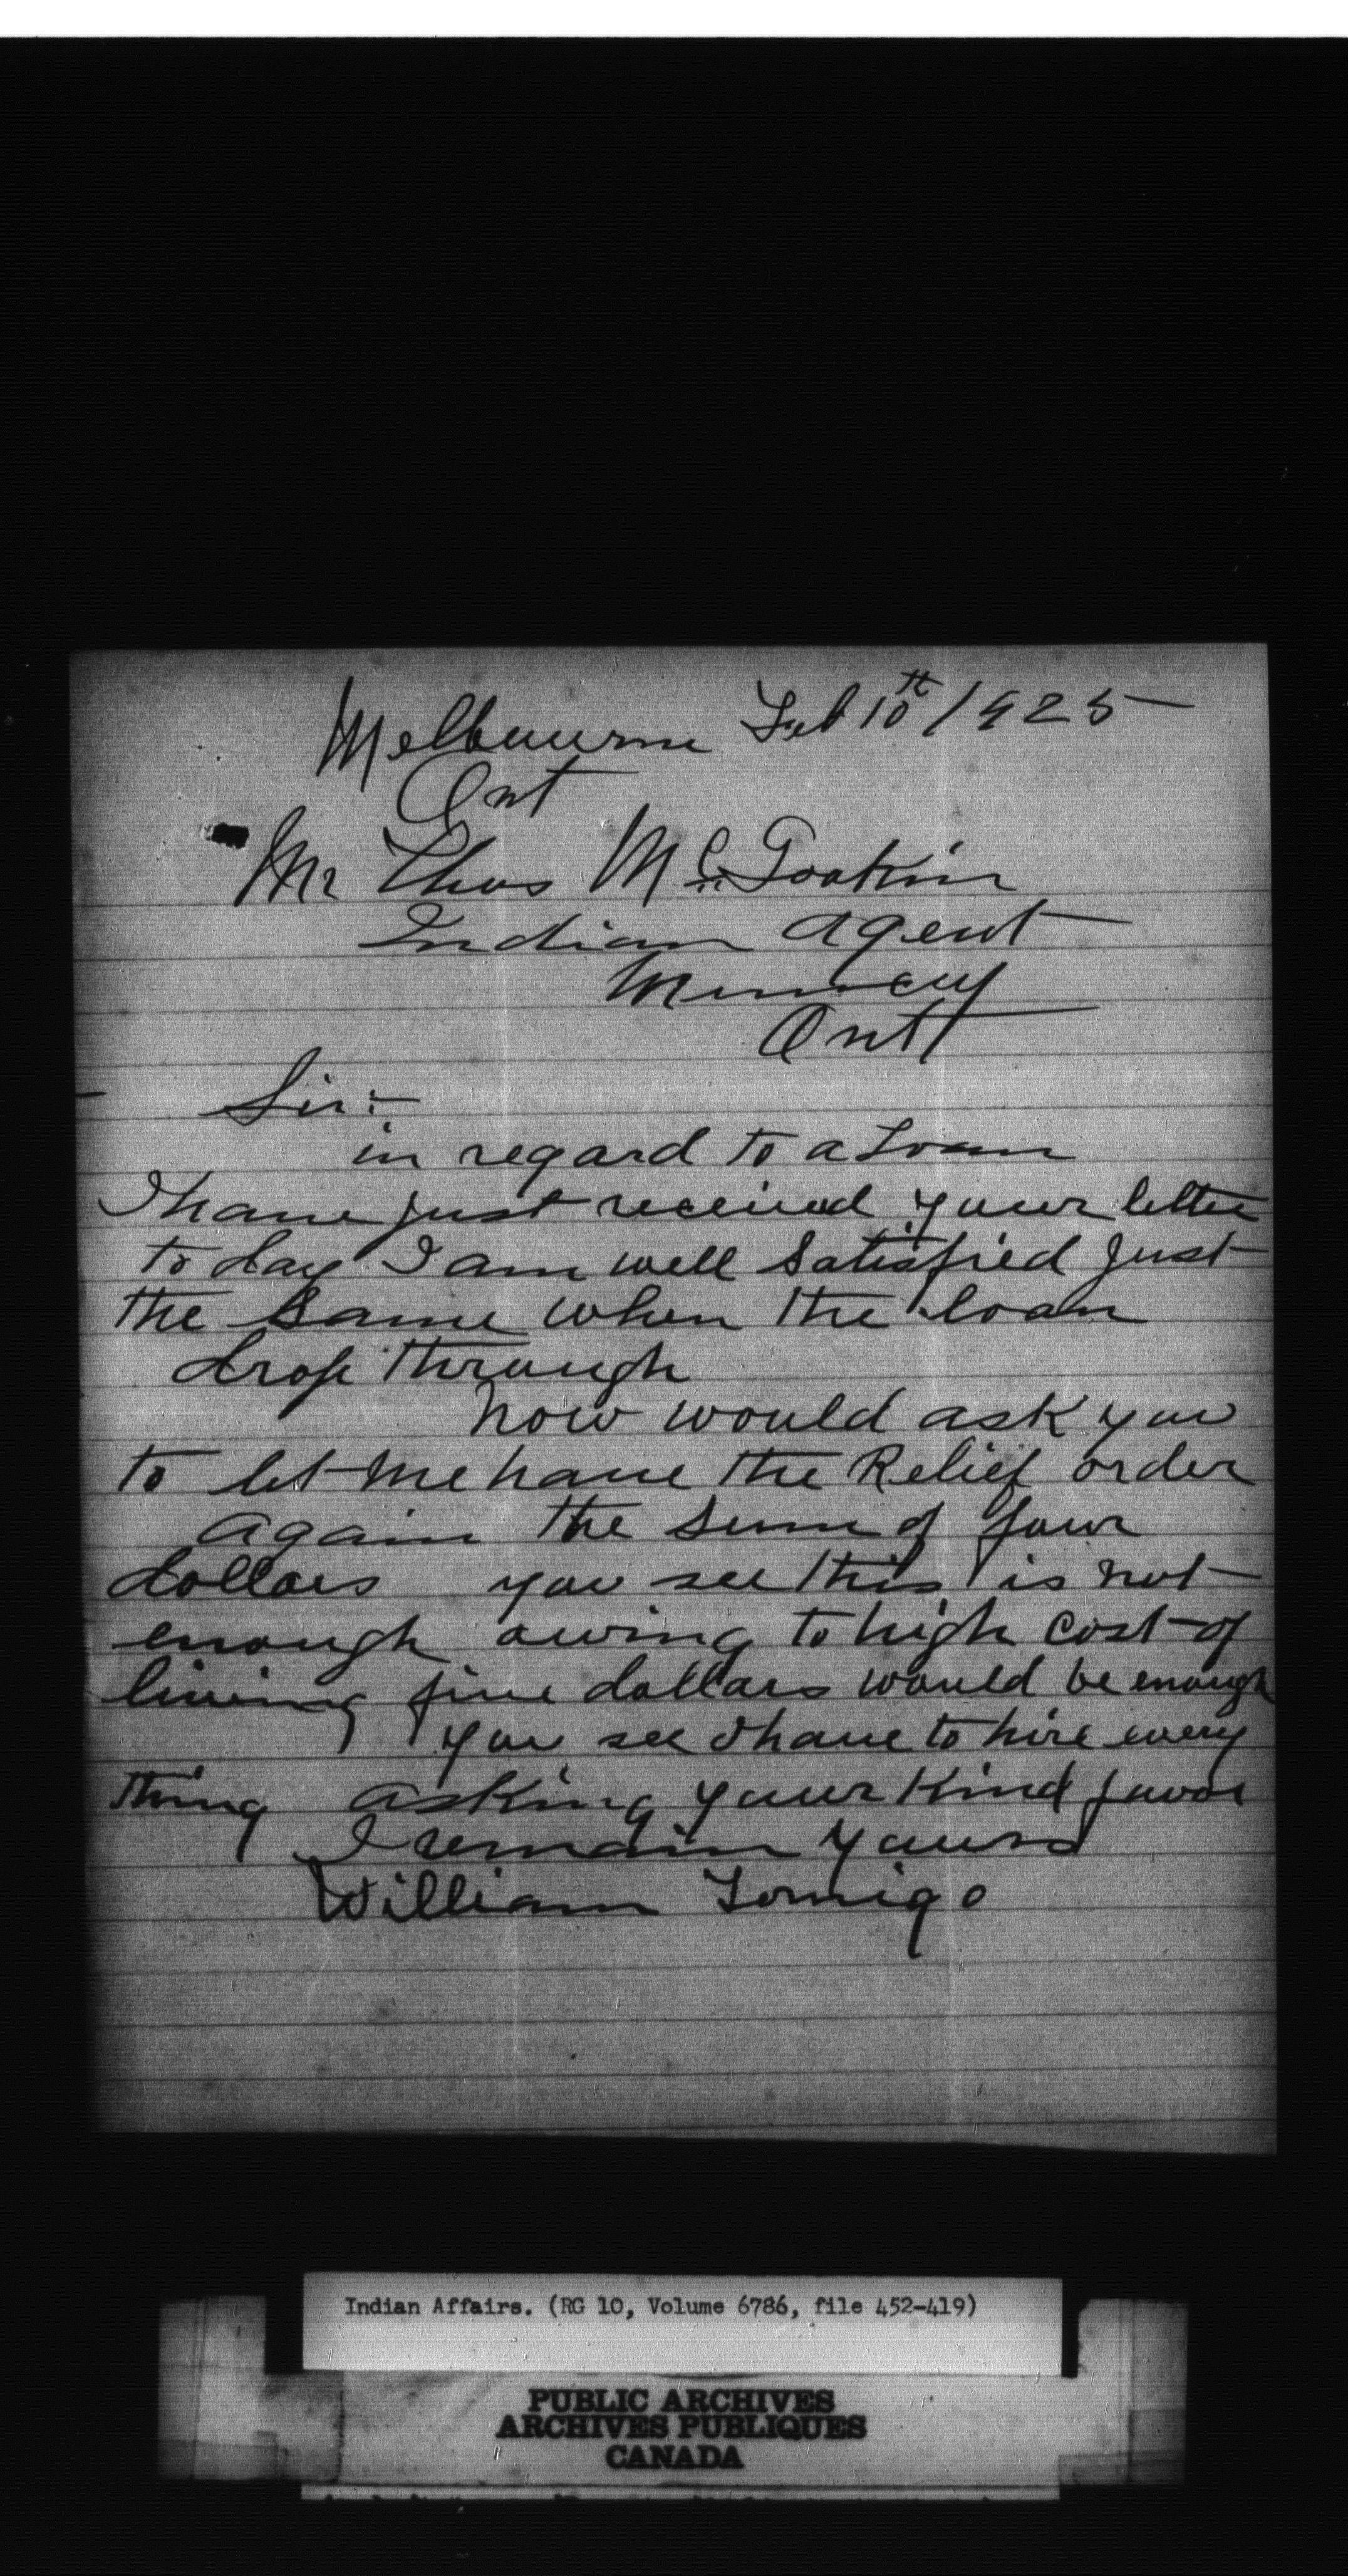 Melbourne Feb 10th/1925
Ont
Mr Thos McGookin
Indian Agent
Muncey
Ont
Sir:-
in regard to a Loan
I have just received your letter
to day I am well satisfied just
the same when the loan
drop through
now would ask you
to let me have the Relief order
again the sum of four
dollars you see this is not
enough owing to high cost of
living five dollars would be enough
you see I have to hire every
thing asking your Kind favor
I remain yours
William Tomigo
Indian Affairs. (RG 10, Volume 6786, file 452-419)
PUBLIC ARCHIVES
ARCHIVES PUBLIQUES
CANADA